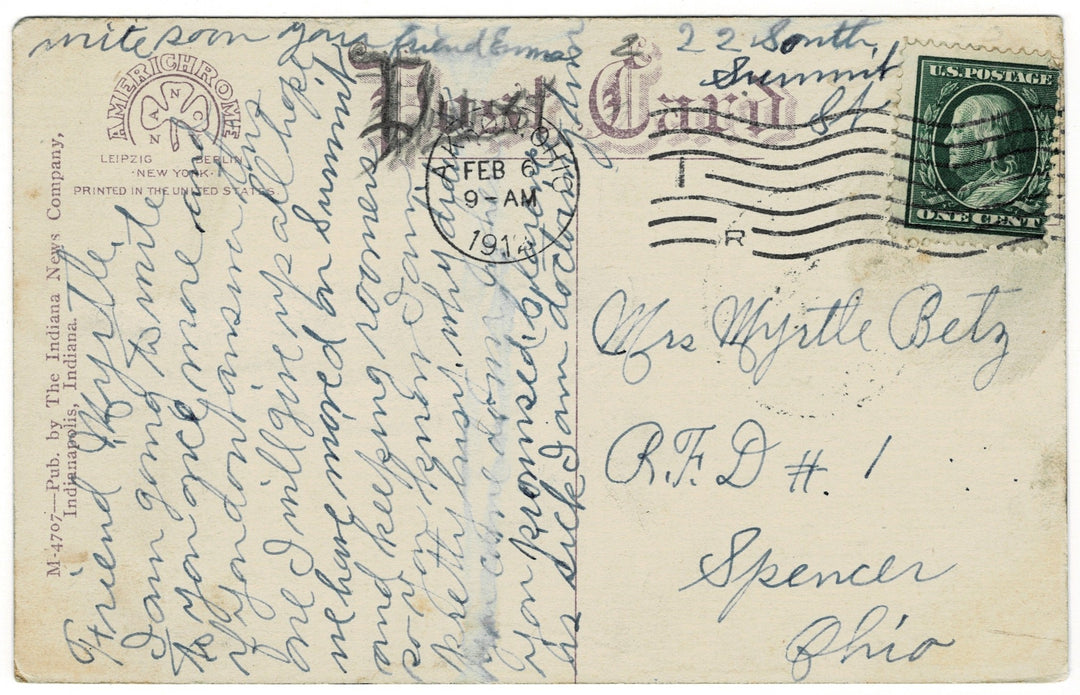 write soon your friend Emma
22 South
Summit
St
Post Card
AMERICHROME
N
A C
N
LEIPZIG BERLIN
NEW YORK
PRINTED IN THE UNITED STATES
M-4707—Pub. by The Indiana News Company,
Indianapolis, Indiana.
AKRON, OHIO
FEB 6
9-AM
1914
R
U.S. POSTAGE
ONE CENT
Friend Myrtle
I am going to write
to you once more and
if you dont answer this
one I will give up all hope
we have moved on Summit
and keeping roomers
so you know I am
pretty busy, why did
you come down when
you promised Spencer
is sick I am doctoring him
Mrs Myrtle Betz
R.F.D # 1
Spencer
Ohio